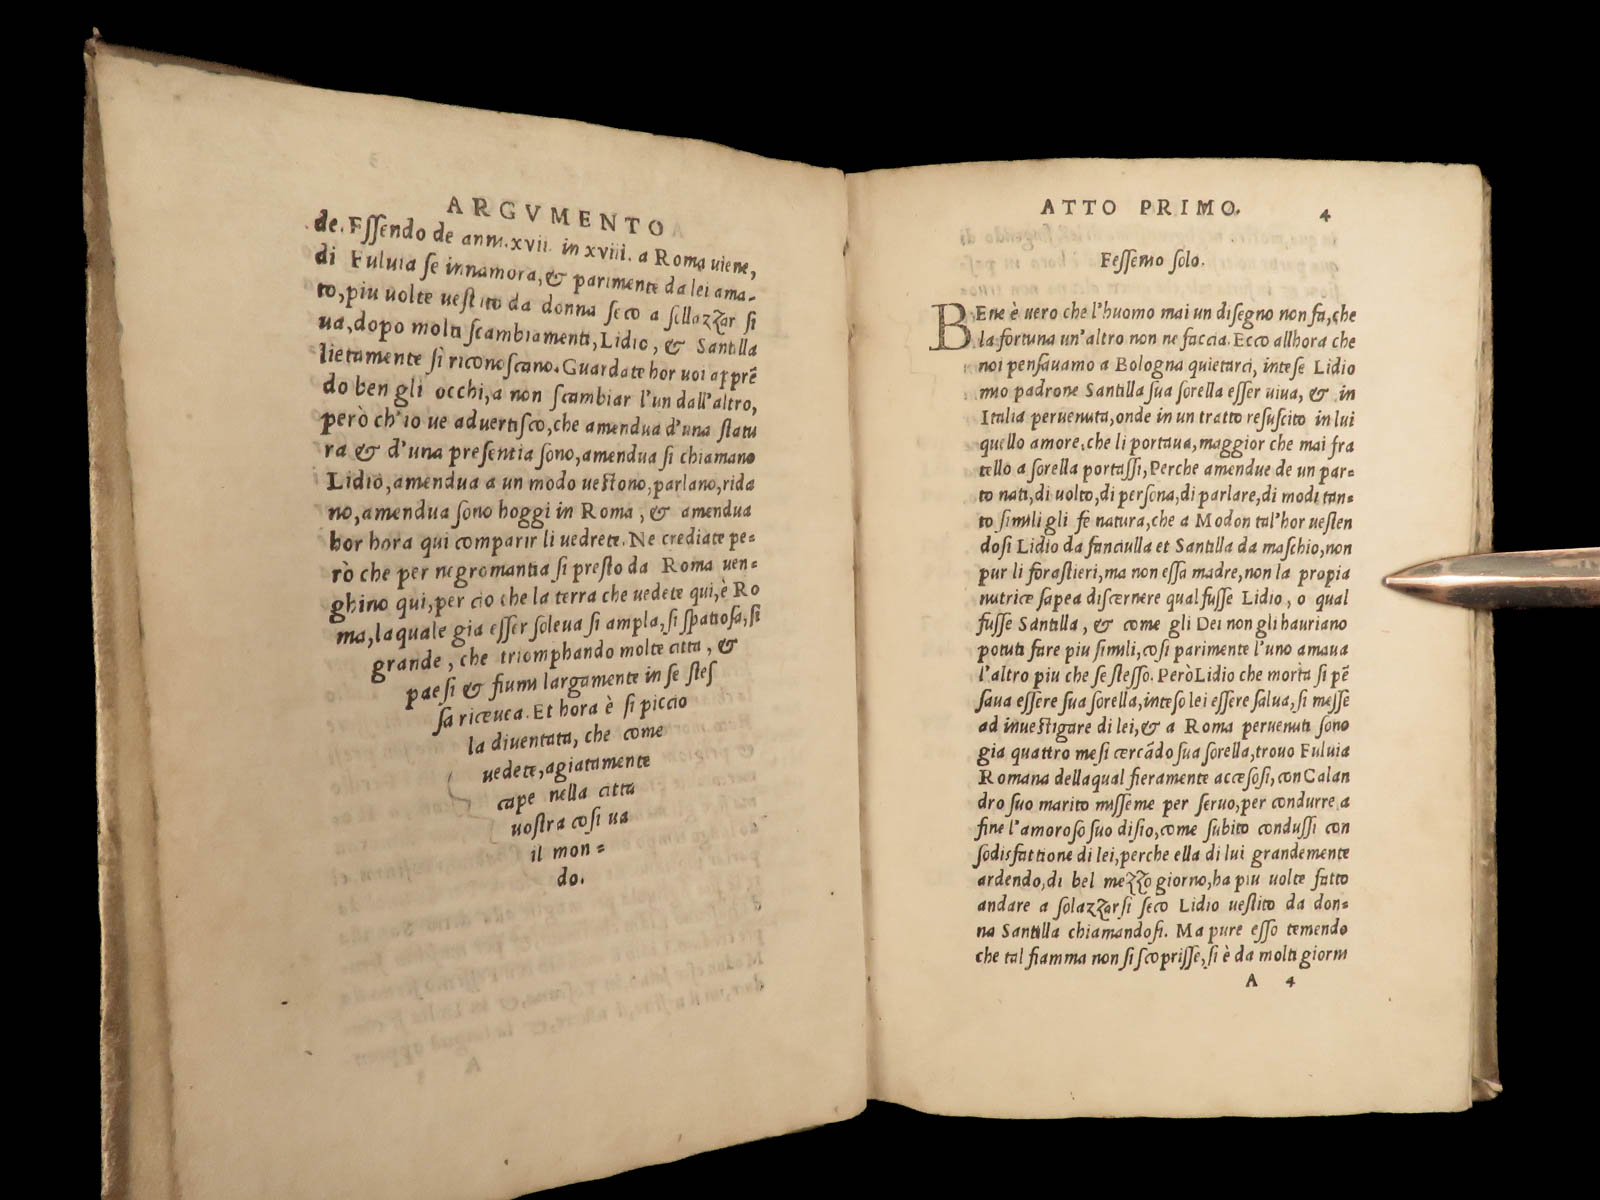 ARGVMENTO
de. Essendo de anni.xvii. in xviii. a Roma uiene,
di Fuluia se innamora, & parimente da lei ama-
to, piu uolte uestito da donna seco a sollazzar si
ua, dopo molti scambiamenti, Lidio, & Santilla
lietamente si riconoscano. Guardate hor uoi aprẽ
do ben gli occhi, a non scambiar l'un dall'altro,
però ch'io ue aduertisco, che amendua d'una statu
ra & d'una presentia sono, amendua si chiamano
Lidio, amendua a un modo uestono, parlano, rida
no, amendua sono hoggi in Roma, & amendua
hor hora qui comparir li uedrete. Ne crediate pe=
rò che per negromantia si presto da Roma uen=
ghino qui, per cio che la terra che uedete qui, è Ro
ma, laquale gia esser soleua si ampla, si spatiosa, si
grande, che triomphando molte citta, &
paesi & fiumi largamente in se stes
sa riceueca. Et hora è si piccio
la diuentata, che come
uedete, agiatamente
cape nella citta
uostra cosi ua
il mon=
do.
ATTO PRIMO. 4
Fessenio solo.
BEne è uero che l'huomo mai un disegno non fa, che
la fortuna un'altro non ne faccia. Ecco allhora che
noi pensauamo a Bologna quietarci, intese Lidio
mio padrone Santilla sua sorella esser uiua, & in
Italia peruenuta, onde in un tratto resuscito in lui
quello amore, che li portaua, maggior che mai fra
tello a sorella portassi, Perche amendue de un par=
to nati, di uolto, di persona, di parlare, di modi tan=
to simili gli fe natura, che a Modon tal'hor uesten
dosi Lidio da fanciulla et Santilla da maschio, non
pur li forastieri, ma non essa madre, non la propia
nutrice sapea discernere qual fusse Lidio, o qual
fusse Santilla, & come gli Dei non gli hauriano
potuti fare piu simili, cosi parimente l'uno amaua
l'altro piu che se stesso. Però Lidio che morta si pẽ
saua essere sua sorella, inteso lei essere salua, si messe
ad inuestigare di lei, & a Roma peruenuti sono
gia quattro mesi cercãdo sua sorella, trouo Fuluia
Romana dellaqual fieramente accesosi, con Calan
dro suo marito misseme per seruo, per condurre a
fine l'amoroso suo disio, come subito condussi con
sodisfattione di lei, perche ella di lui grandemente
ardendo, di bel mezzo giorno, ha piu uolte fatto
andare a solazzarsi seco Lidio uestito da don=
na Santilla chiamandosi. Ma pure esso temendo
che tal fiamma non si scoprisse, si è da molti giorni
A 4